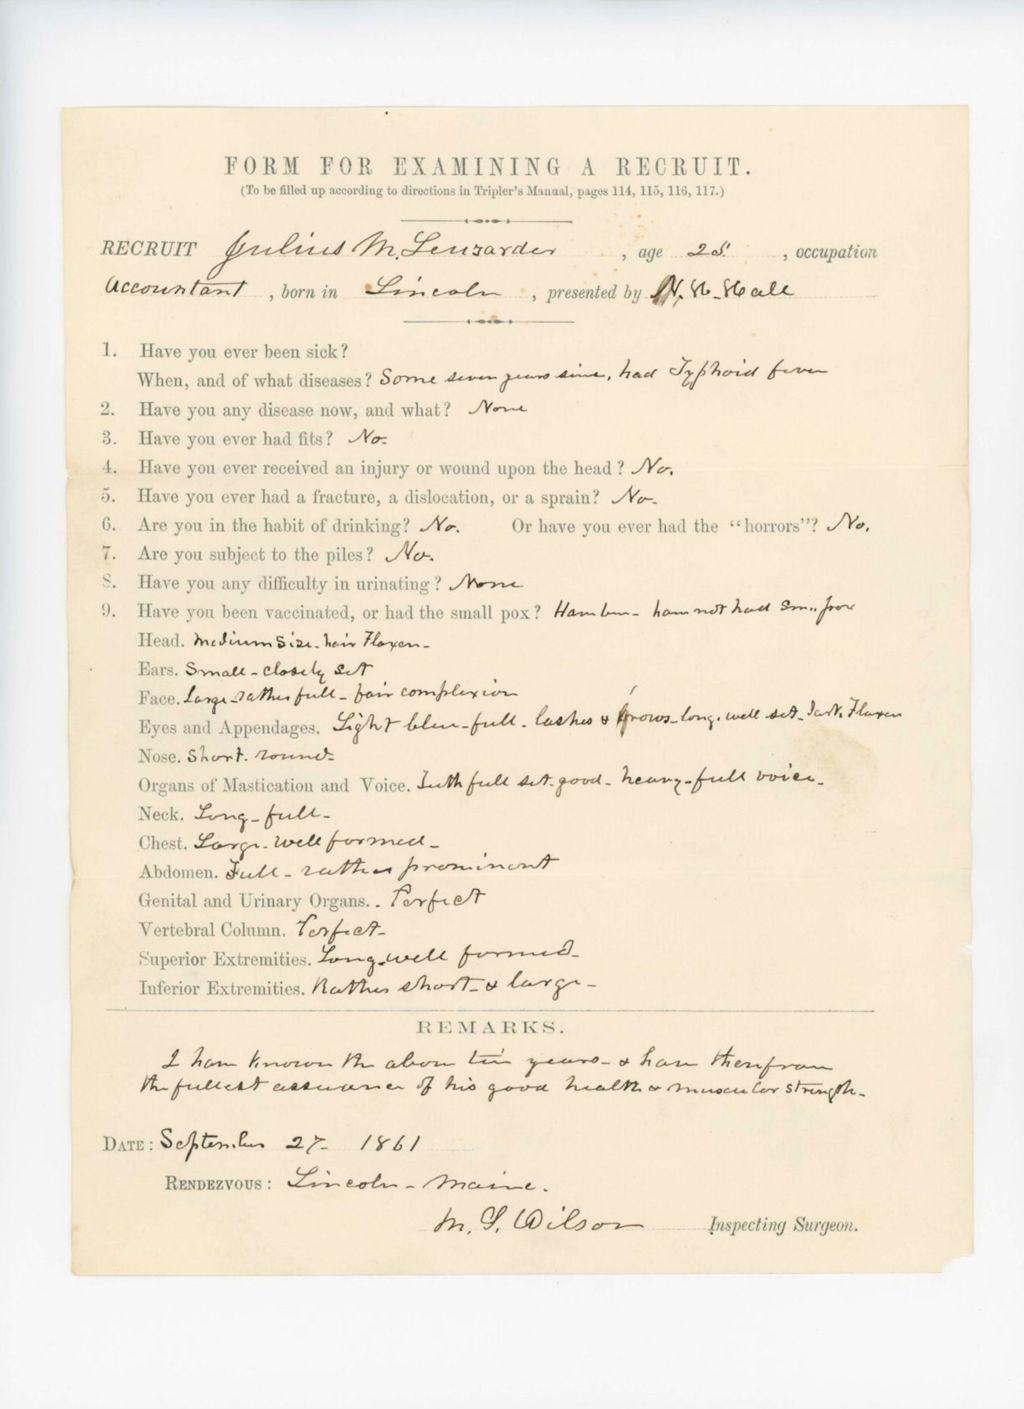 FORM FOR EXAMINING A RECRUIT.
(To be filled up according to directions in Tripler's Manual, pages 114, 115, 116, 117.)
RECRUIT Julius M. Leuzarder , age 25 , occupation
Accountant , born in Lincoln , presented by N. H. Hall
1. Have you ever been sick?
When, and of what diseases? Some seven years since, had Typhoid fever
2. Have you any disease now, and what? None
3. Have you ever had fits? No.
4. Have you ever received an injury or wound upon the head? No.
5. Have you ever had a fracture, a dislocation, or a sprain? No.
6. Are you in the habit of drinking? No. Or have you ever had the "horrors"? No.
7. Are you subject to the piles? No.
8. Have you any difficulty in urinating? None
9. Have you been vaccinated, or had the small pox? Have been - have not had Sm.. pox
Head. Medium Size - hair Flaxen -
Ears. Small - closely set
Face. Large - rather full - fair complexion
Eyes and Appendages. Light blue - full - lashes & brows - long, well set - dark Flaxen
Nose. Short - round -
Organs of Mastication and Voice. Teeth full set - good - heavy - full voice -
Neck. Long - full -
Chest. Large - well formed -
Abdomen. Full - rather prominent
Genital and Urinary Organs. - Perfect
Vertebral Column. Perfect -
Superior Extremities. Long - well formed -
Inferior Extremities. Rather short - & large -
REMARKS.
I have known the above ten years - & have therefrom
the fullest assurance of his good health & muscular strength -
DATE: September 27 - 1861
RENDEZVOUS: Lincoln - Maine.
M. S. Wilson Inspecting Surgeon.